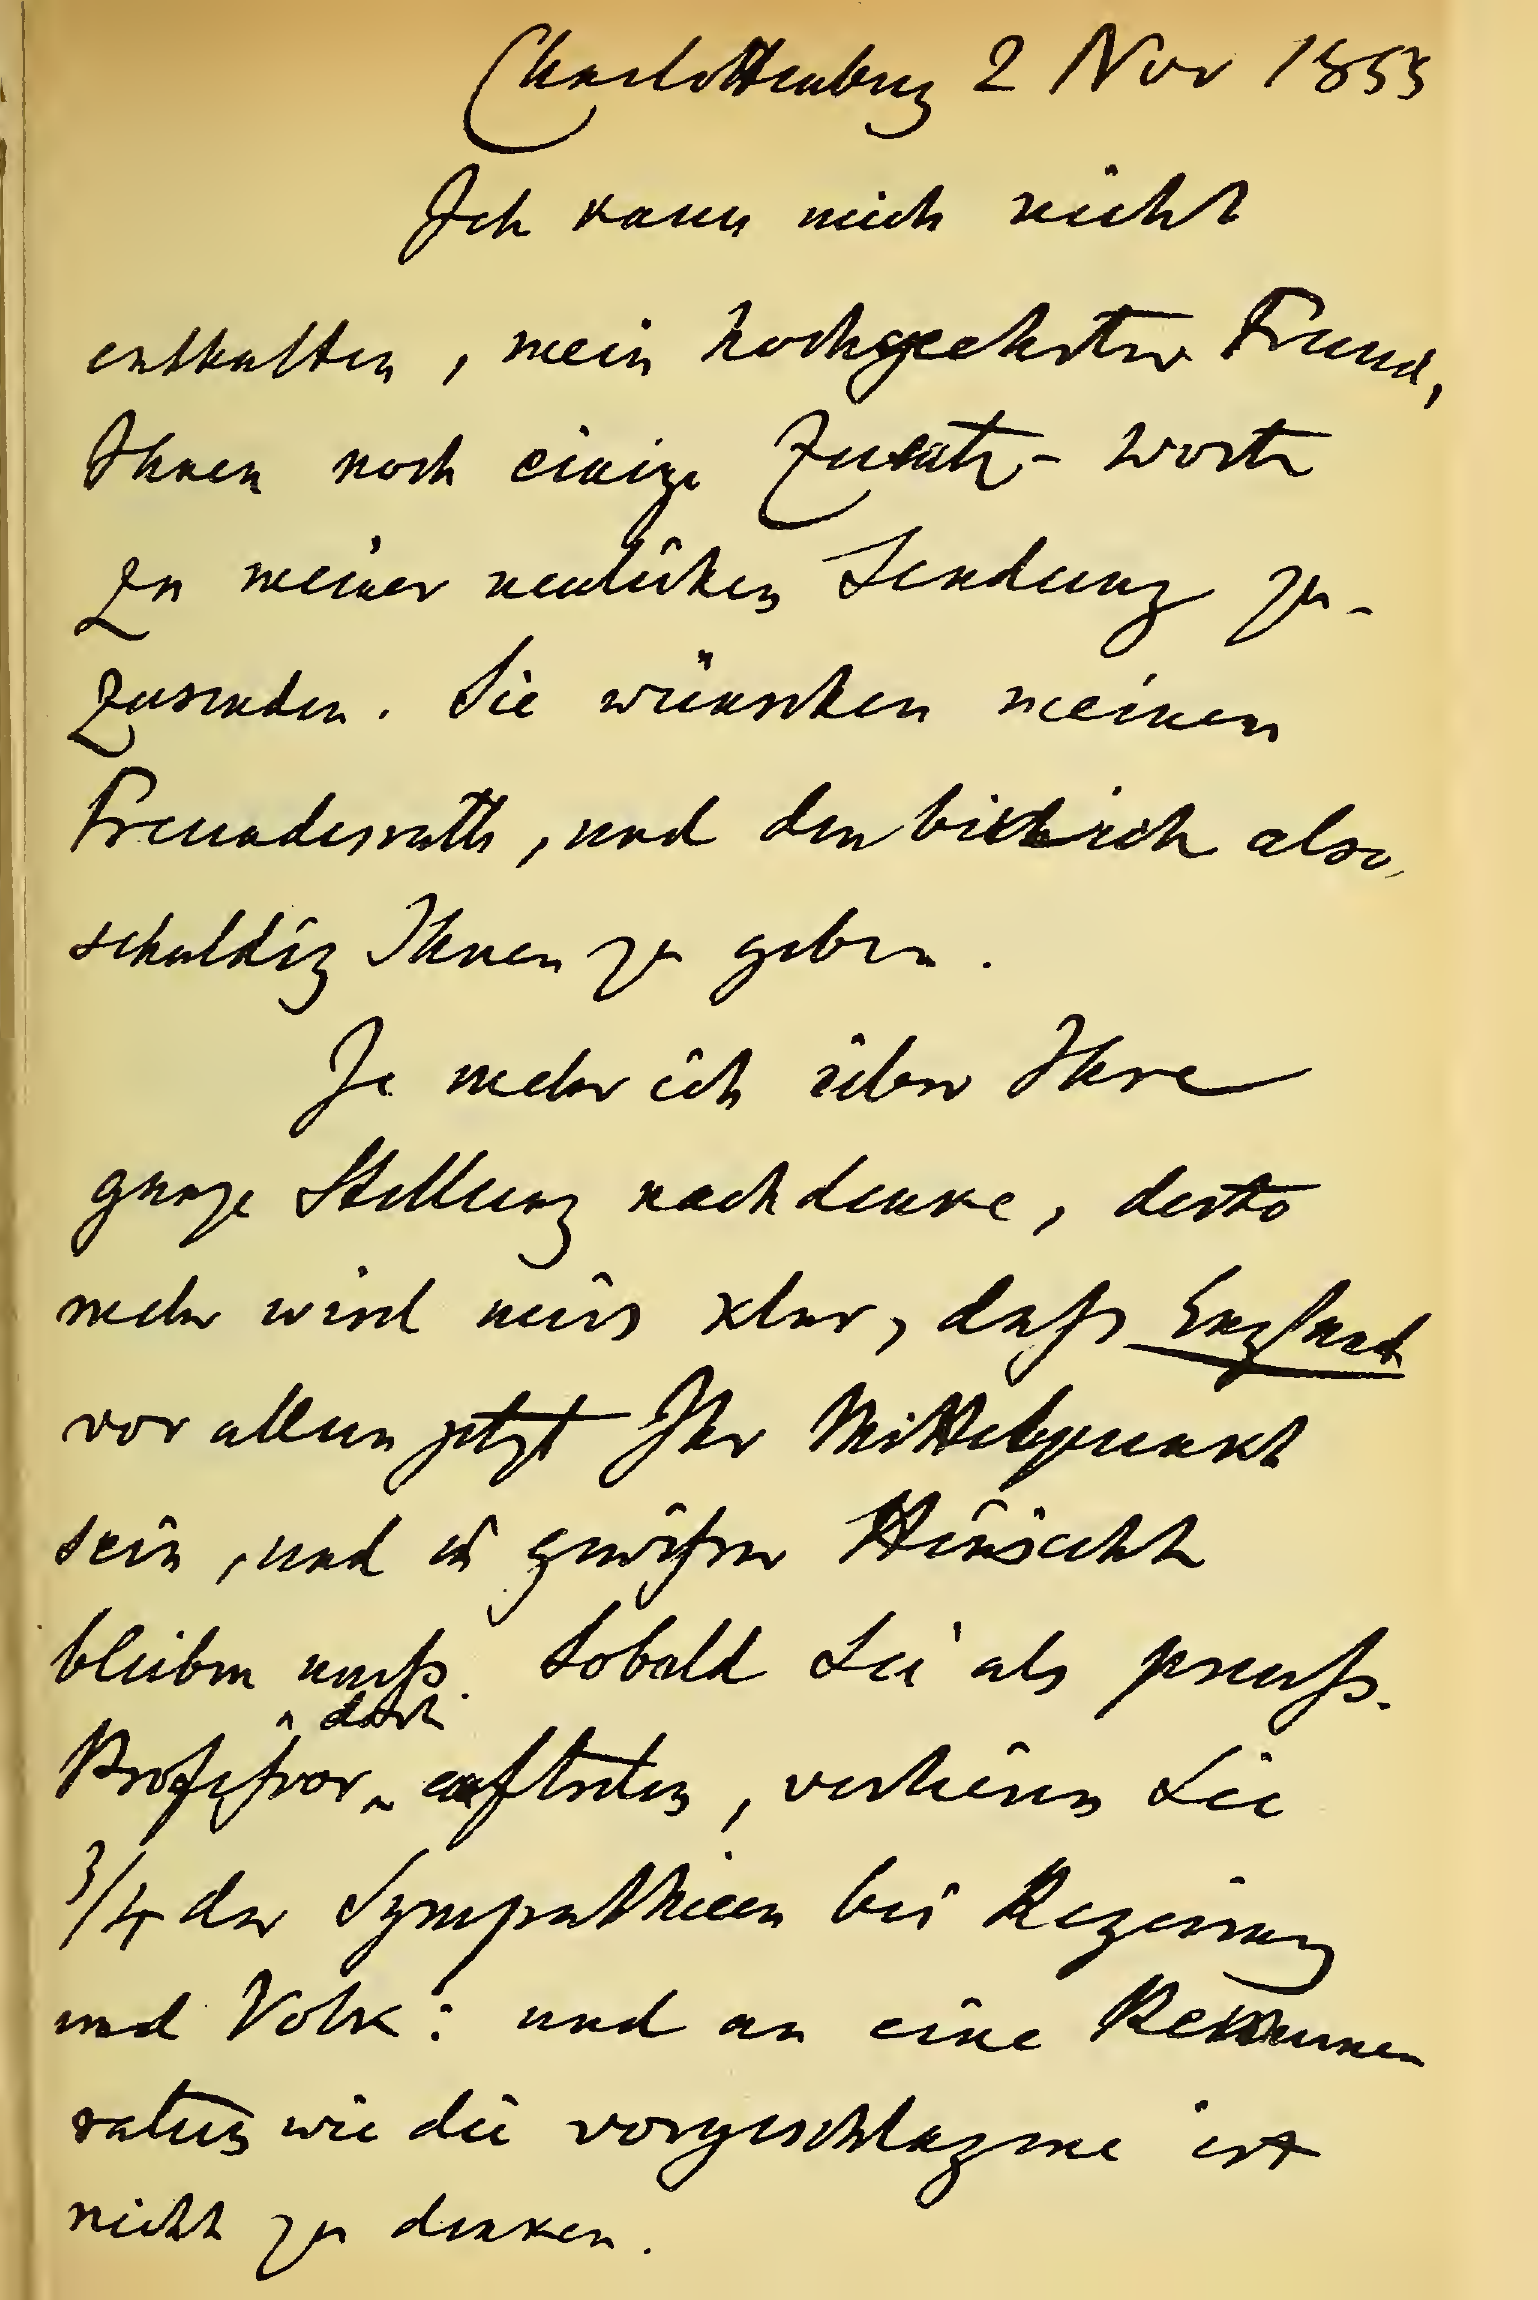 Charlottenburg 2 Nov 1853
Ich kann mich nicht
enthalten, mein hochgeehrter Freund,
Ihnen noch einige Zusatz-worte
zu meiner neulichen Sendung zu-
zusenden. Sie wünschen meinen
Freundesrath, und den bin ich also
schuldig Ihnen zu geben.
Je mehr ich über Ihre
ganze Stellung nachdenke, desto
mehr wird mirs klar, daß England
vor allem jetzt Ihr Mittelpunkt
sein, und in gewißer Hinsicht
bleiben muß. Sobald Sie als preuß.
Professor dort auftreten, verlieren Sie
3/4 der Sympathieen bei Regierung
und Volk: und an eine Remune
ration wie die vorgeschlagene ist
nicht zu denken.